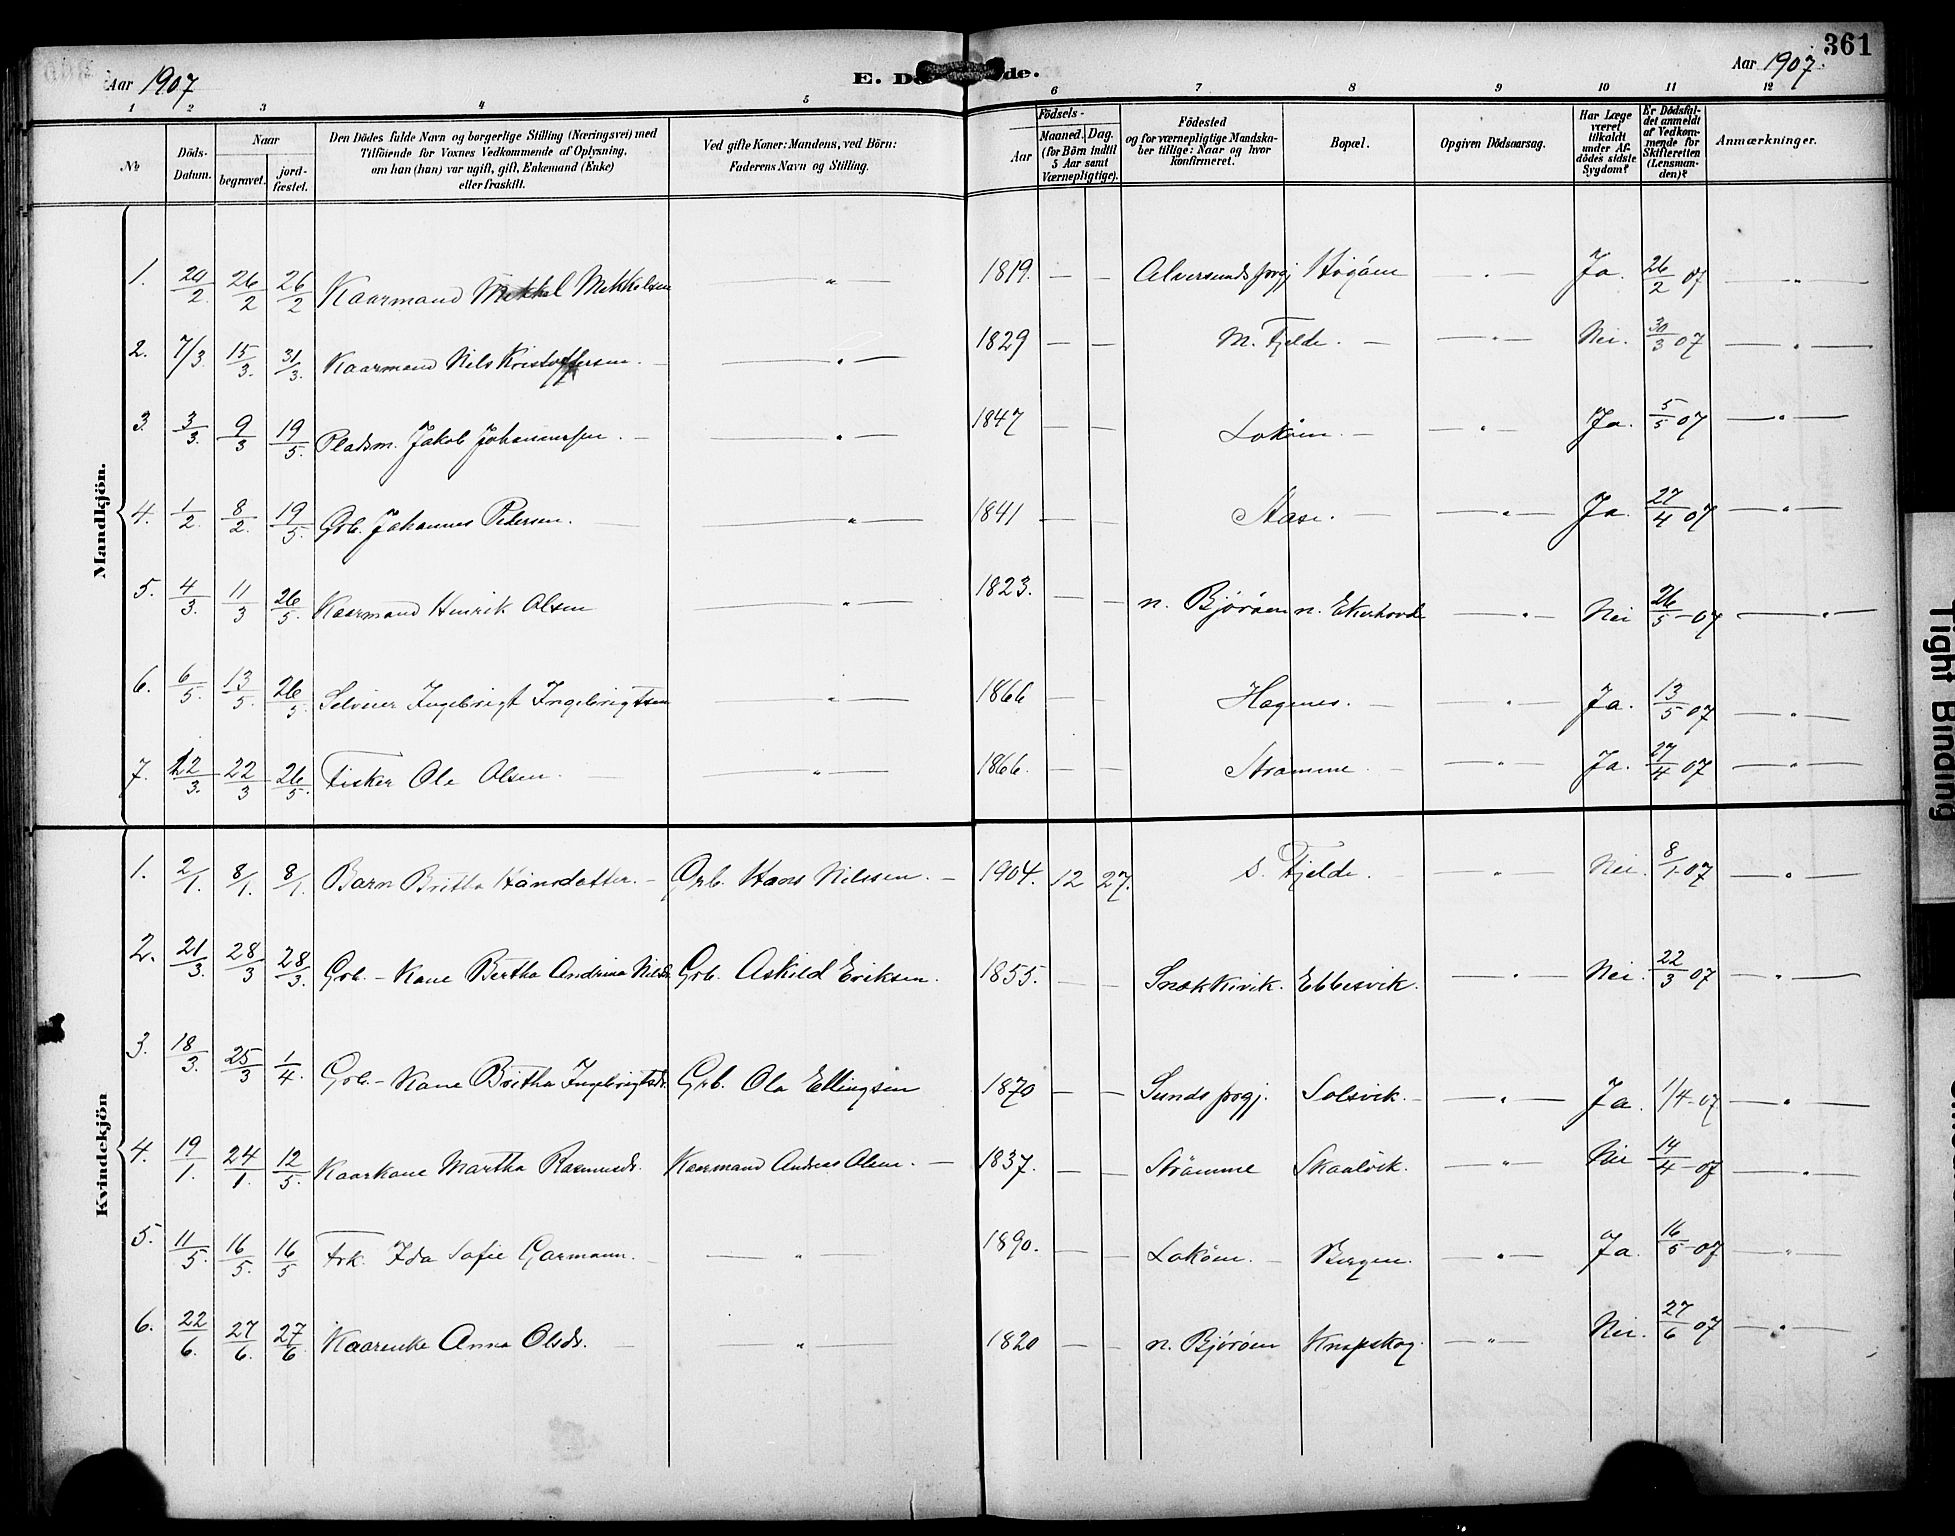 361
Aar 1907
E. Dö de.
Aar 1907.
1 2 3 4 5 6 7 8 9 10 11 12
No
Döds-Datum.
Naar
begravet.
jord-fæstet.
Den Dödes fulde Navn og borgerlige Stilling (Næringsvei) med Tilföiende for Voxnes Vedkommende af Oplysning, om han (hun) var ugift, gift, Enkemand (Enke) eller fraskilt.
Ved gifte Koner: Mandens, ved Börn: Faderens Navn og Stilling.
Födsels-
Aar
Maaned. Dag.
(for Börn indtil 5 Aar samt Værnepligtige).
Födested og for værnepligtige Mandskaber tillige: Naar og hvor konfirmeret.
Bopæl.
Opgiven Dödsaarsag.
Har Læge været tilkaldt under Afdödes sidste Sygdom?
Er Dödsfaldet anmeldt af Vedkommende for Skifteretten (Lensmanden)?
Anmærkninger.
Mandkjön.
1. 20/2 26/2 26/2 Kaarmand Mikkel Mikkelsen — " — 1819. — — Alversunds prgj Högöen — " — Ja. 26/2 07 — " —
2. 7/3 15/3. 31/3. Kaarmand Nils Kristoffersen. — — " — 1829 — — M. Fjelde. — — " — Nei. 30/3 07 — " —
3. 3/3. 9/3 19/5. Pladsm. Jakob Johannessen. — — " — 1847 — — Loköen. — — " — Ja. 5/5 07 — " —
4. 1/2. 8/2. 19/5. Grb. Johannes Pedersen. — " — 1841 — Aase. — — " — Ja. 27/4 07 — " —
5. 4/3. 11/3 26/5. Kaarmand Henrik Olsen — " — 1823. — — n. Björöen n. Ekerhovde — " — Nei 26/5-07 — " —
6. 6/5. 13/5. 26/5 Selveier Ingebrigt Ingebrigtsen — " — 1866 — — Hagenes. — — " — Ja. 13/5 07 — " —
7. 12/3. 22/3 26/5. Fisker Ole Olsen. — " — 1866. — — Stramme. — — " — Ja. 27/4 07 — " —
Kvindekjön
1. 2/1. 8/1. 8/1. Barn Britha Hansdatter. — Grb. Hans Nilssen. — 1904. 12 27. S. Fjelde. — " — Nei. 8/1-07 — " —
2. 21/3. 28/3 28/3. Grb.-Kone Bertha Andrina Nilsdr. Grb. Askild Eriksen. 1855. — — Snekkevik. Ebbesvik. — " — Nei. 22/3 07 — " —
3. 18/3. 25/3 1/4. Grb.-Kone Britha Ingebrigtsdr. Grb. Ole Ellingsen 1870 — — Sunds prgj. Solsvik. — " — Ja. 1/4-07 — " —
4. 19/1. 24/1. 12/5. Kaarkone Martha Rasmusdr. Kaarmand Andreas Olsen. — 1837. — — Strömme Skaalvik. — " — Nei 14/4-07 — " —
5. 11/5. 16/5. 16/5 Frk. Ida Sofie Garmann. — — " 1890. — — Loköen. — Bergen. — " — Ja. 16/5-07 — " —
6. 22/6. 27/6. 27/6 Kaarenke Anna Olsdr. — — " — 1820 — — n. Björöen Knapskog. — " — Nei. 27/6 07 — " —
Tight Binding